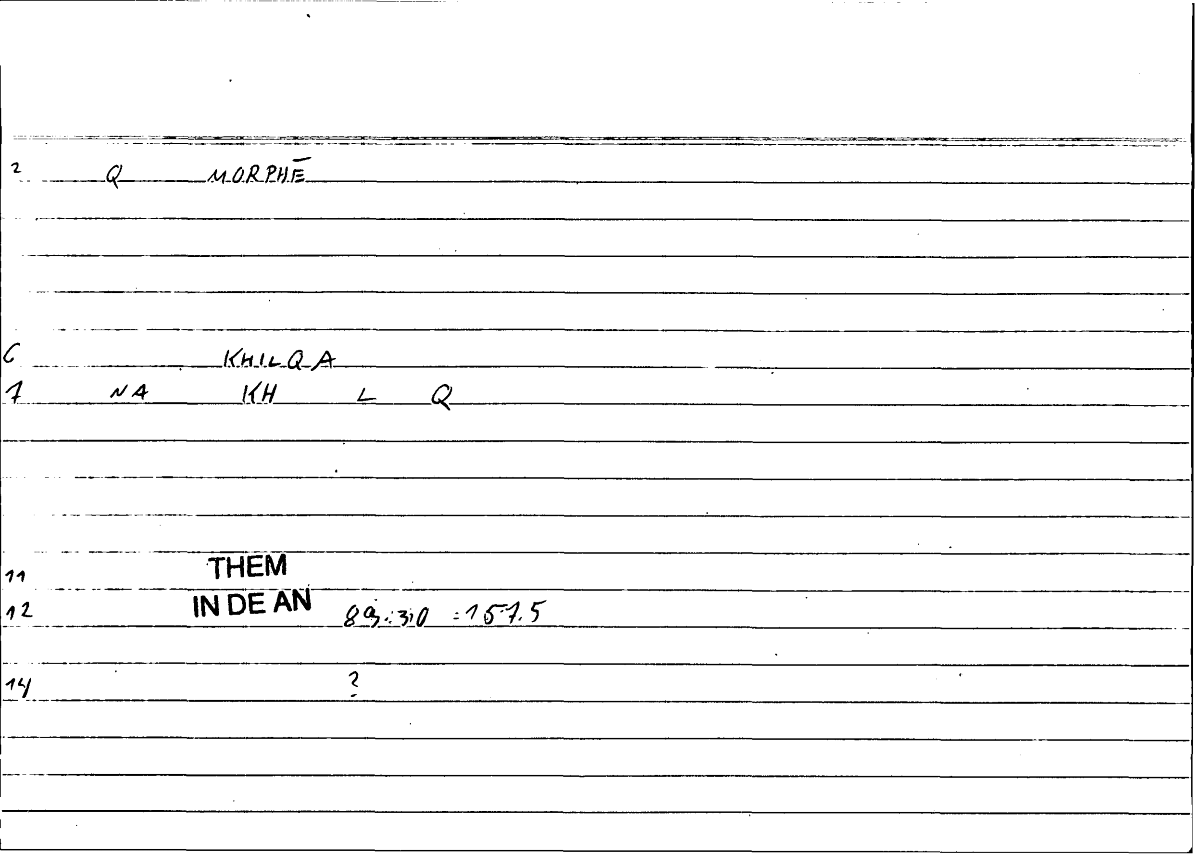 2 Q MORPHĒ
6 KHILQA
7 NA KH L Q
11 THEM
12 IN DE AN 89.:30 :157.5
14 ?